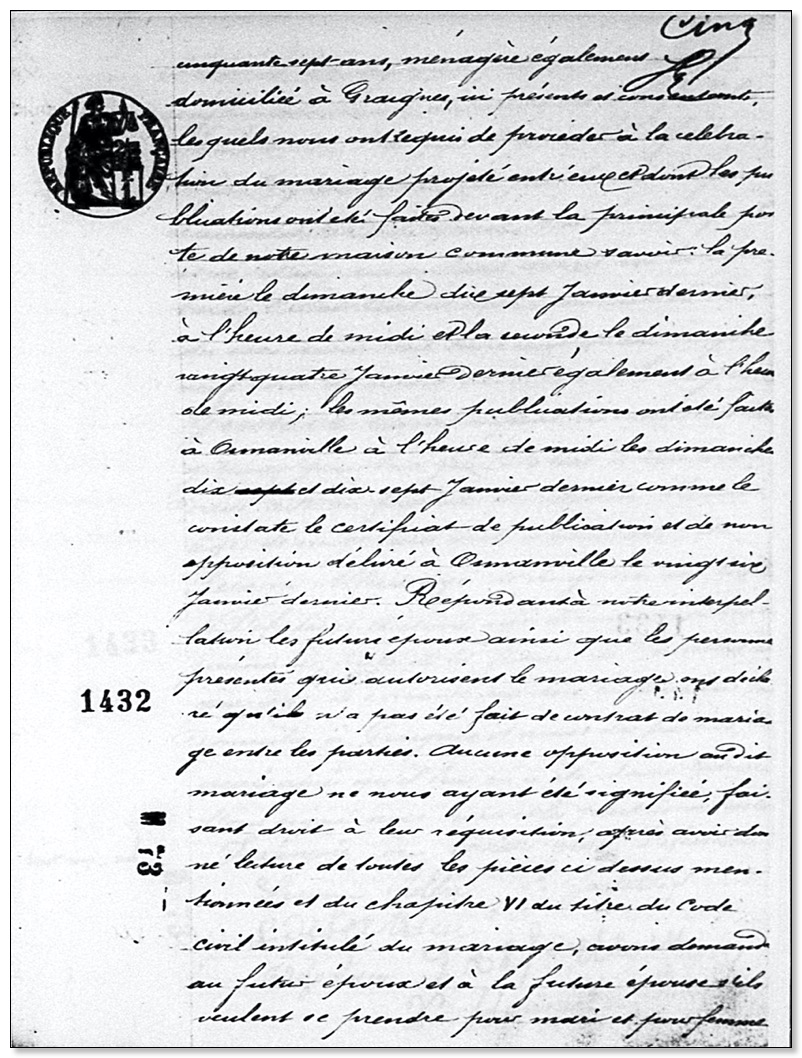 Cinq
cinquante sept ans, ménagère également
domiciliée à Graignes, ici présents et consentant,
RÉPUBLIQUE FRANÇAISE
lesquels nous ont requis de procéder à la célébra-
tion du mariage projeté entr'eux et dont les pu
blications ont été faites devant la principale por
te de notre maison commune savoir: la pre-
mière le dimanche dix sept Janvier dernier,
à l'heure de midi et la seconde le dimanche
vingt quatre Janvier dernier également à l'heure
de midi; les mêmes publications ont été faites
à Osmanville à l'heure de midi les dimanches
dix sept et dix sept Janvier dernier comme le
constate le certificat de publication et de non
opposition délivré à Osmanville le vingt six
Janvier dernier. Répondant à notre interpel-
1433
lation les futurs époux ainsi que les personnes
présentes qui autorisent le mariage ont décla
1432
ré qu'il n'a pas été fait de contrat de maria
ge entre les parties. Aucune opposition au dit
mariage ne nous ayant été signifiée, fai-
sant droit à leur réquisition, après avoir don
né lecture de toutes les pièces ci dessus men-
tionnées et du chapitre VI du titre du Code
civil intitulé du mariage, avons demandé
au futur époux et à la future épouse s'ils
veulent se prendre pour mari et pour femme